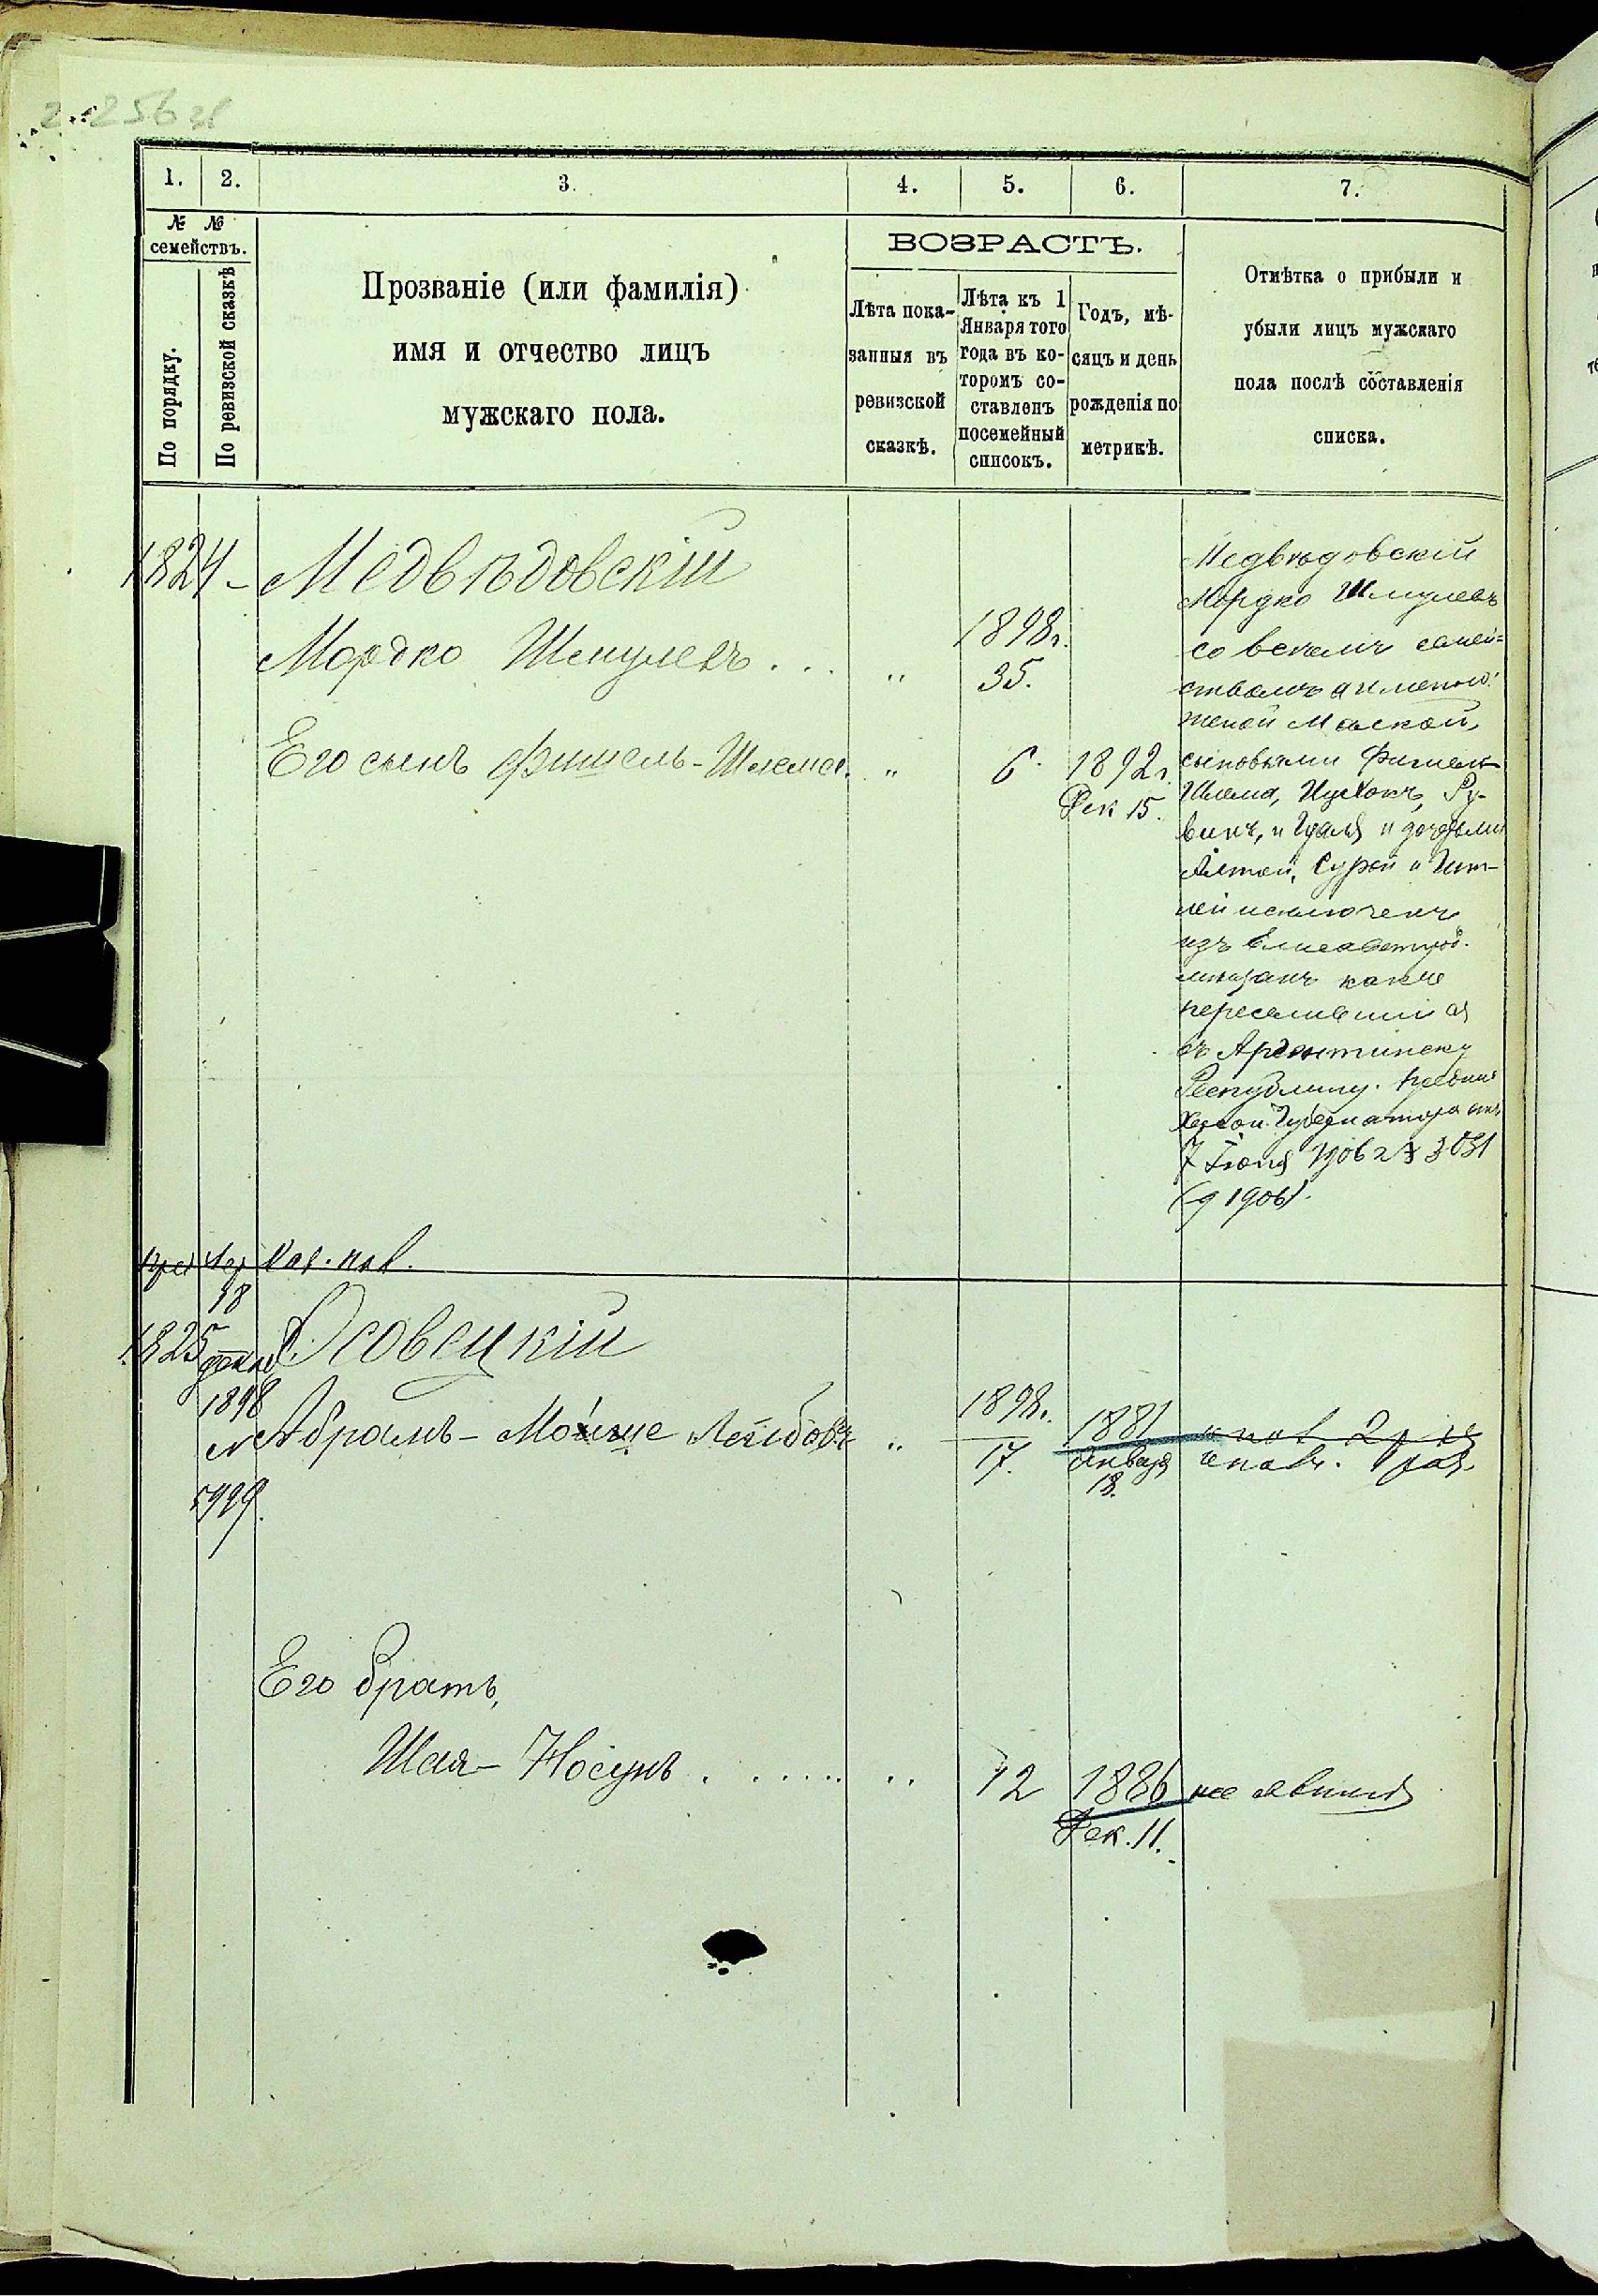 256
1. 2. 3. 4. 5. 6. 7.
№ №
семействъ.
По порядку.
По ревизской сказкѣ
Прозваніе (или фамилія)
имя и отчество лицъ
мужскаго пола.
ВОЗРАСТЪ.
Лѣта пока-
занныя въ
ревизской
сказкѣ.
Лѣта къ 1
Января того
года въ ко-
торомъ со-
ставленъ
посемейный
списокъ.
Годъ, мѣ-
сяцъ и день
рожденія по
метрикѣ.
Отмѣтка о прибыли и
убыли лицъ мужскаго
пола послѣ составленія
списка.
1824 - Медвѣдовскій
Мордко Шмулевъ . . . „ 1898г.
35.
Его сынъ Фишель-Шлема. „ 6. 1892г.
Дек 15.
Медвѣдовскій
Мордко Шмулевъ
со всемъ семей-
ствомъ а именно:
женой Маской,
сыновьями Фишель
Шлема, Ицхокъ, Ру-
винъ, и и дочерьми
Алтой, Сурой и Гит-
лей исключенъ
изъ Елисаветград.
мѣщанъ какъ
переселившійся
въ Аргентинску
Республику.
Херсон. Губернатора отъ
7 Іюня 1906 г № 3031
(9 1906).
18
1825 Осовецкій
1898
№ Абрамъ-Мойше Лейбовъ „ 1898г.
17. 1881
Января
18.
5999.
Его братъ,
Шая-Носунъ . . . . . . „ 12 1886 не явился
Дек. 11.